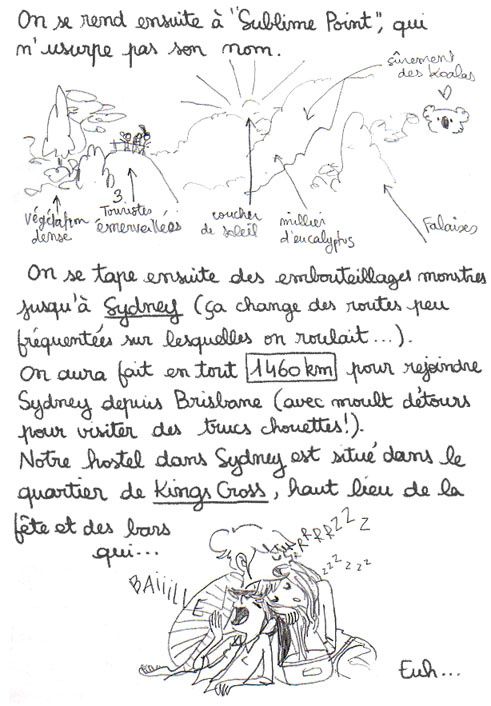 On se rend ensuite à "Sublime Point", qui
n'usurpe pas son nom.
sûrement
des Koalas
végétation
dense
3
Touristes
émerveillées
coucher
de soleil
millier
d'eucalyptus
Falaises
On se tape ensuite des embouteillages monstres
jusqu'à Sydney (ça change des routes peu
fréquentées sur lesquelles on roulait...).
On aura fait en tout 1460 km pour rejoindre
Sydney depuis Brisbane (avec moult détours
pour visiter des trucs chouettes!).
Notre hostel dans Sydney est situé dans le
quartier de Kings Cross, haut lieu de la
fête et des bars
qui...
RRRRZZZZ
zzzzzz
BAIIILLE
Euh...